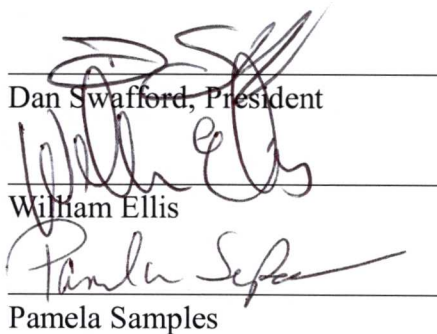 Dan Swafford, President
William Ellis
William Ellis
Pamela Samples